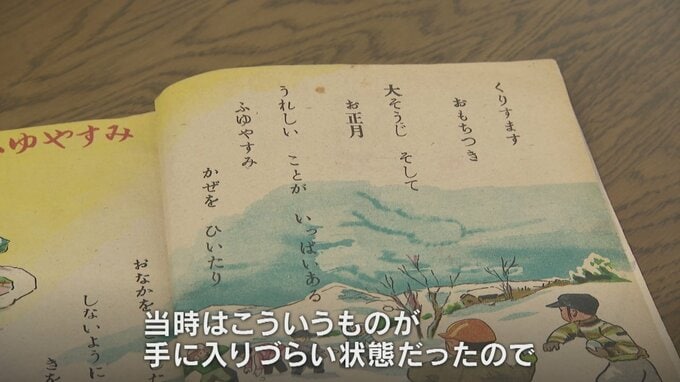 くりすます
おもちつき
大そうじ そして
お正月
うれしい ことが いっぱいある
ふゆやすみ
かぜを ひいたり
おなかを
しないように
ふゆやすみ
当時はこういうものが
手に入りづらい状態だったので